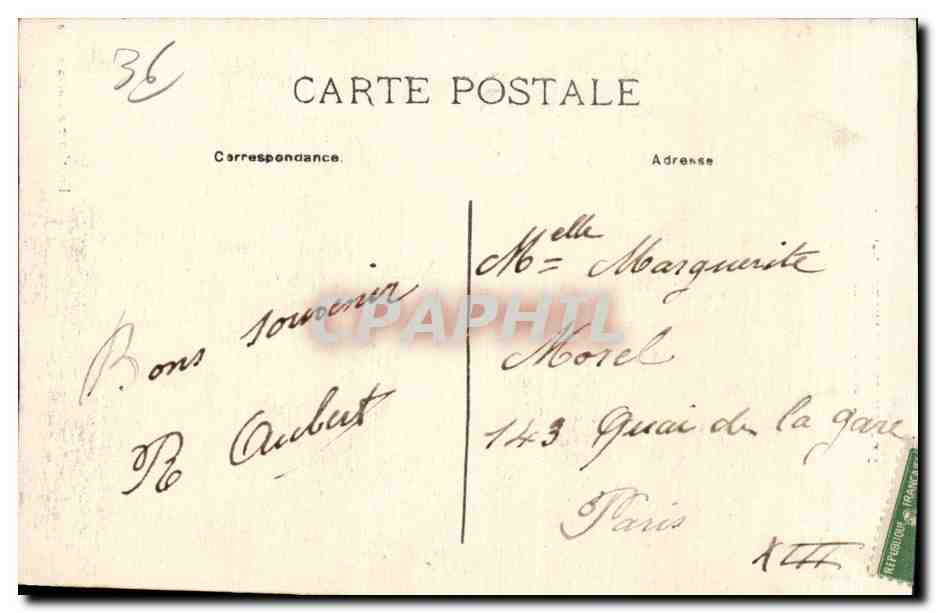 36
CARTE POSTALE
Correspondance.
Adresse
Bons souvenir
R Aubert
Melle Marguerite
Morel
143 Quai de la gare
Paris
XIII
CPAPHIL
REPUBLIQUE FRANCAISE